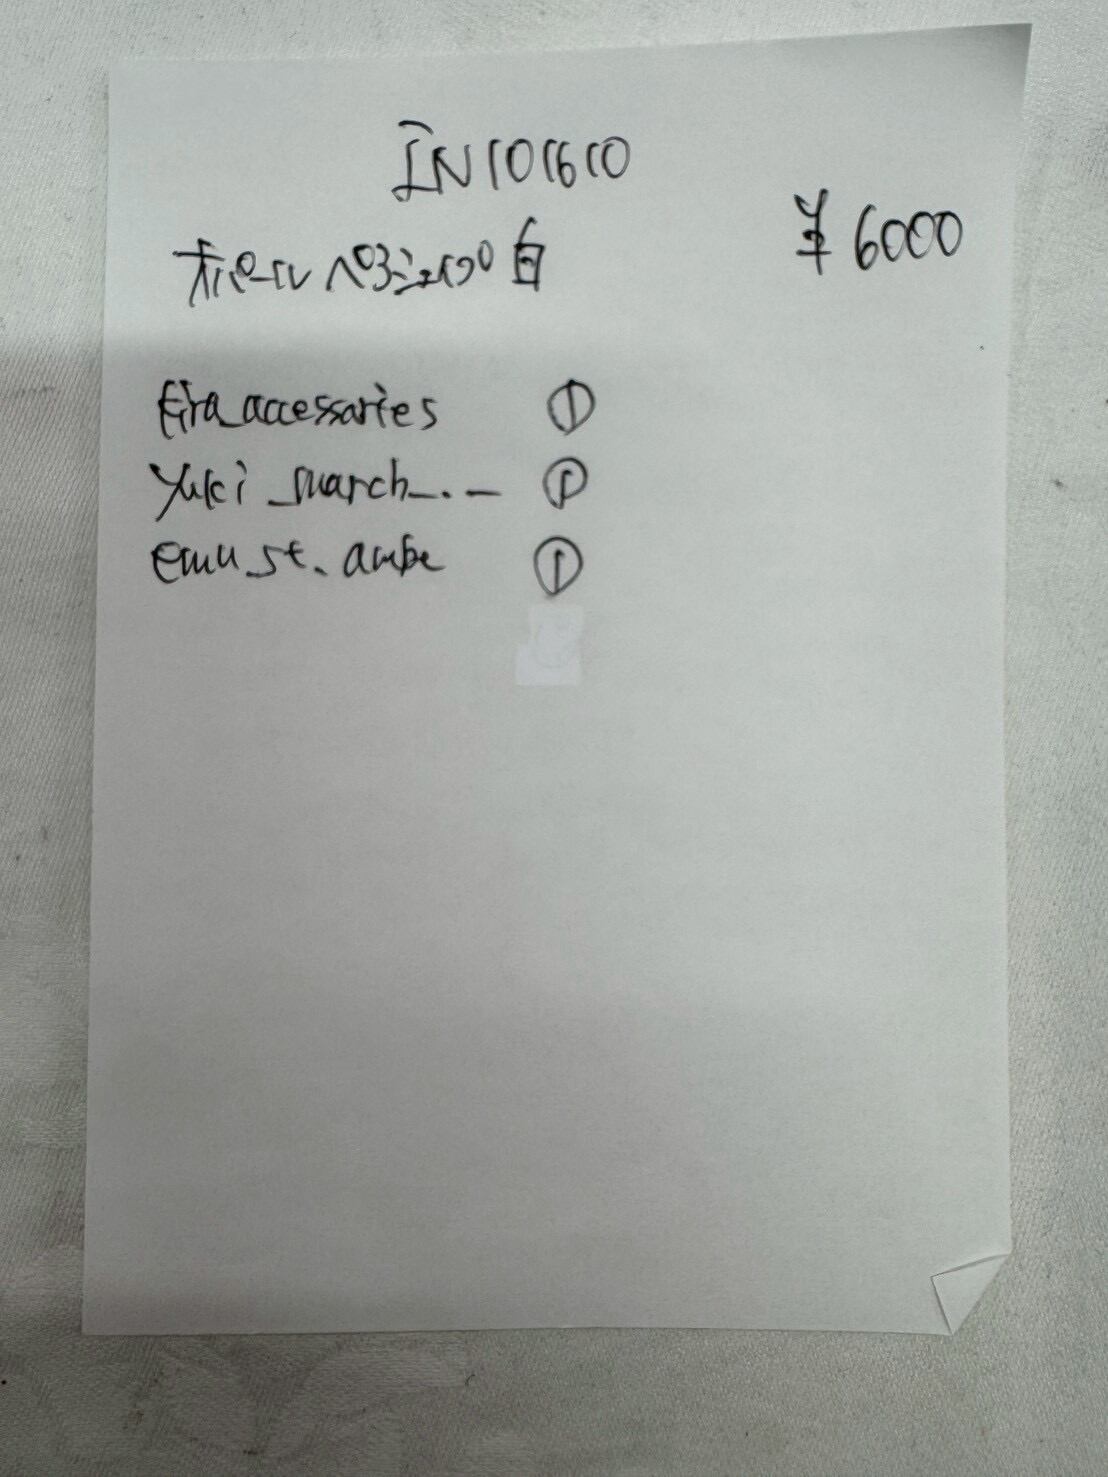 IN101610
オパール ペンジェップ 白 ¥6000
Eira_accessaries ①
yuki_march_._ ①
emu_st.aube ①